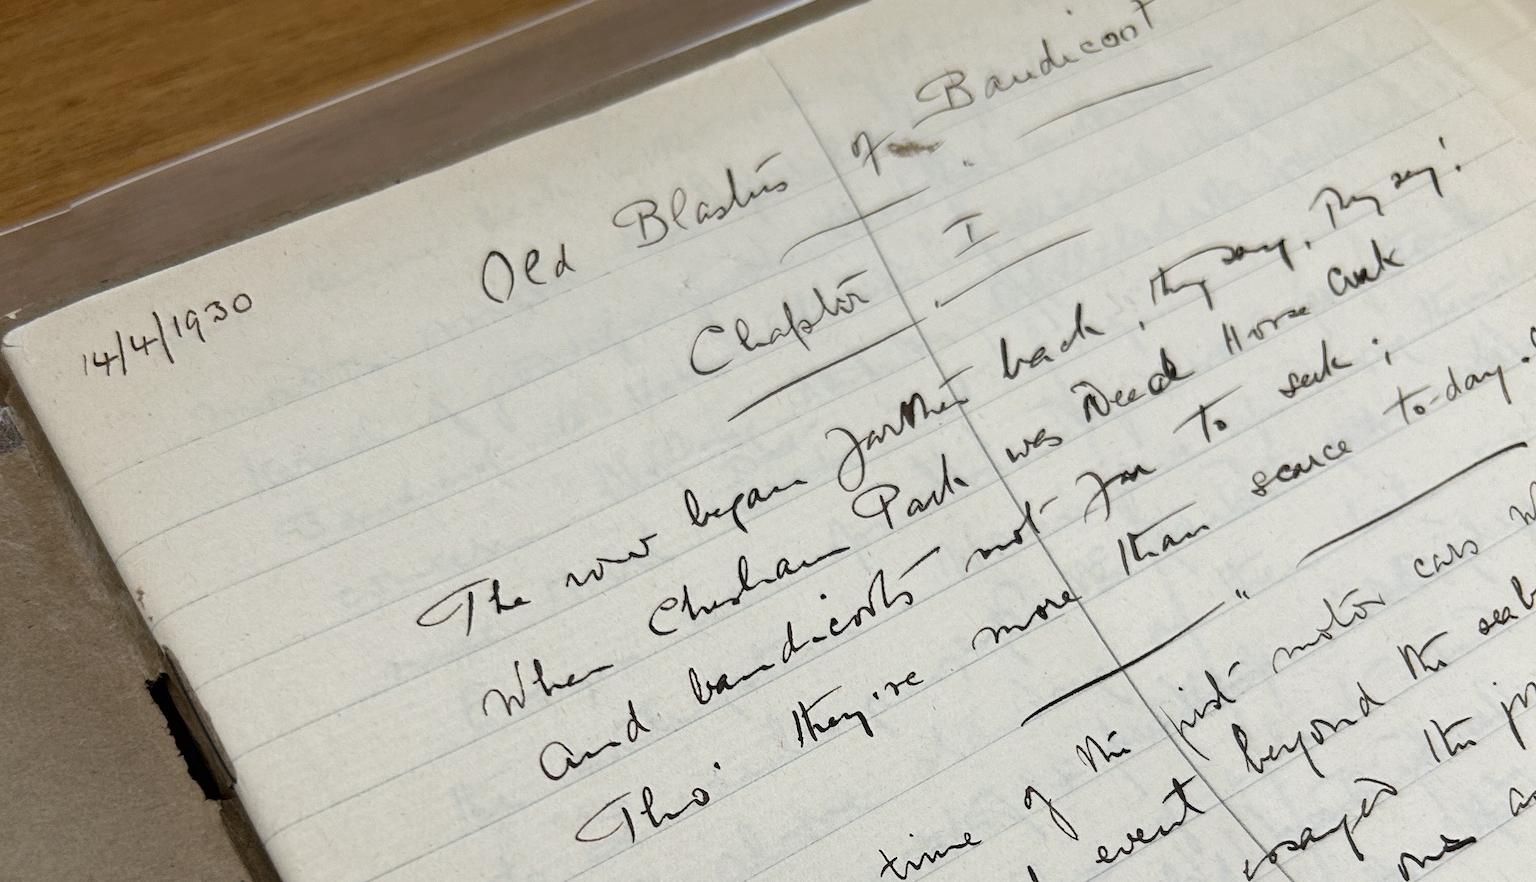 14/4/1930
Old Blastus of Bandicoot
Chapter I
The row began farther back, they say, they say!
When Chesham Park was Dead Horse Creek
And bandicoots not far to seek;
Tho' they're more than scarce to-day.
time of the first motor cars
event beyond the
the